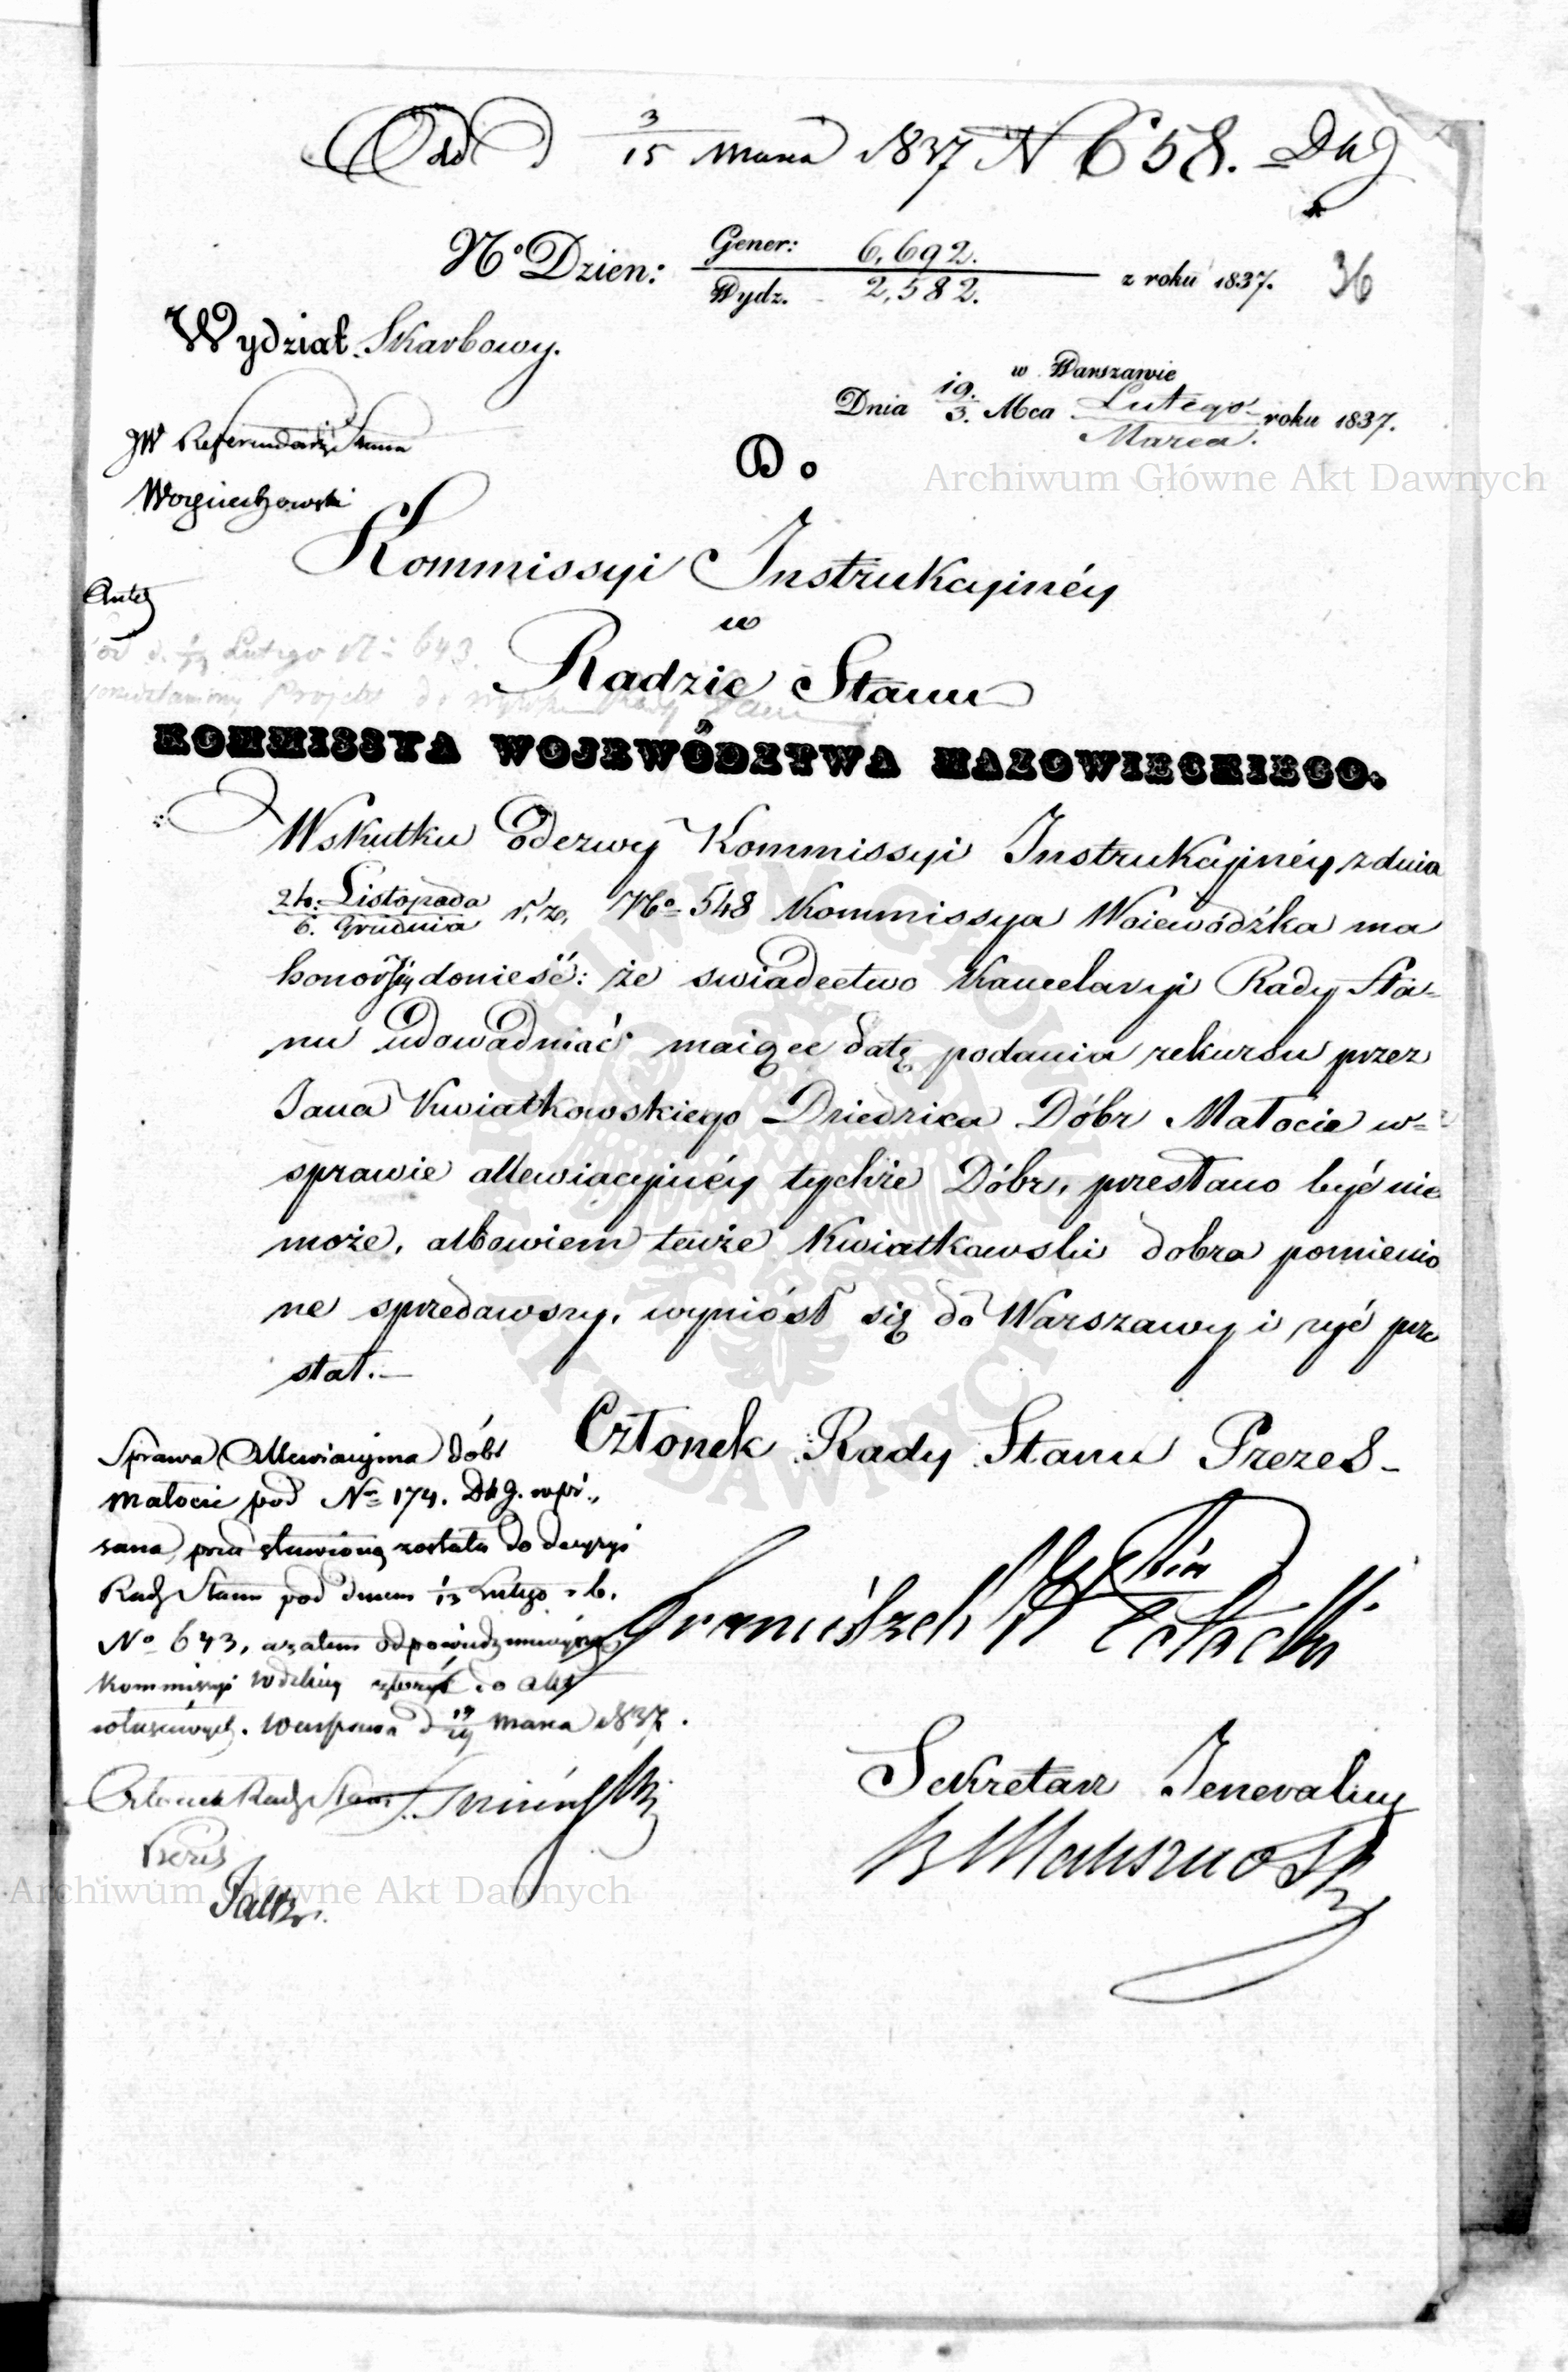 Odd 3/15 Marca 1837 N 658. DkJ
36
No Dzien: Gener: 6,692. z roku 1837.
Wydz. 2,582.
Wydział Skarbowy.
w Warszawie
Dnia 19./3. Mca Lutego/Marca. roku 1837.
JW Referendarz Stanu
Woyciechowski
Do
Kommissyi Instrukcyinéy
w
Radzie Stanu
Lutego No 643.
Projekt do
KOMMISSYA WOJEWÓDZTWA MAZOWIECKIEGO.
Wskutku Odezwy Kommissyi Instrukcyinéy z dnia
24. Listopada/6. Grudnia r. z. No 548 Kommissya Woiewódźka ma
honor Jéy donieść: że swiadectwo Kancelaryi Rady Sta-
nu udowadniać maiące datę podania rekursu przez
Jana Kwiatkowskiego Dziedzica Dóbr Matocie w=
sprawie allewiacyinéy tychże Dóbr, przesłano być nie
może, albowiem tenże Kwiatkowski dobra pomienio
ne sprzedawszy, wyniósł się do Warszawy i żyć prze
stał.—
Członek Rady Stanu Prezes-
Sprawa Allewiacyina dóbr
Matocie pod No 174. DkJ. wpi-
sana, przedstawioną została do decyzyi
Rady Stanu pod dniem 1/13 Lutego r. b.
No 643, a zatem odpowiedź niniejszą
Kommissyi Wdzkiey złożyć do akt
właściwych. Warszawa d 12/24 Marca 1837.
Franciszek Potocki
Członek Rady Stanu
Prezes
Sekretarz Jeneralny
Archiwum Główne Akt Dawnych
Archiwum Główne Akt Dawnych
ARCHIWUM GŁÓWNE AKT DAWNYCH